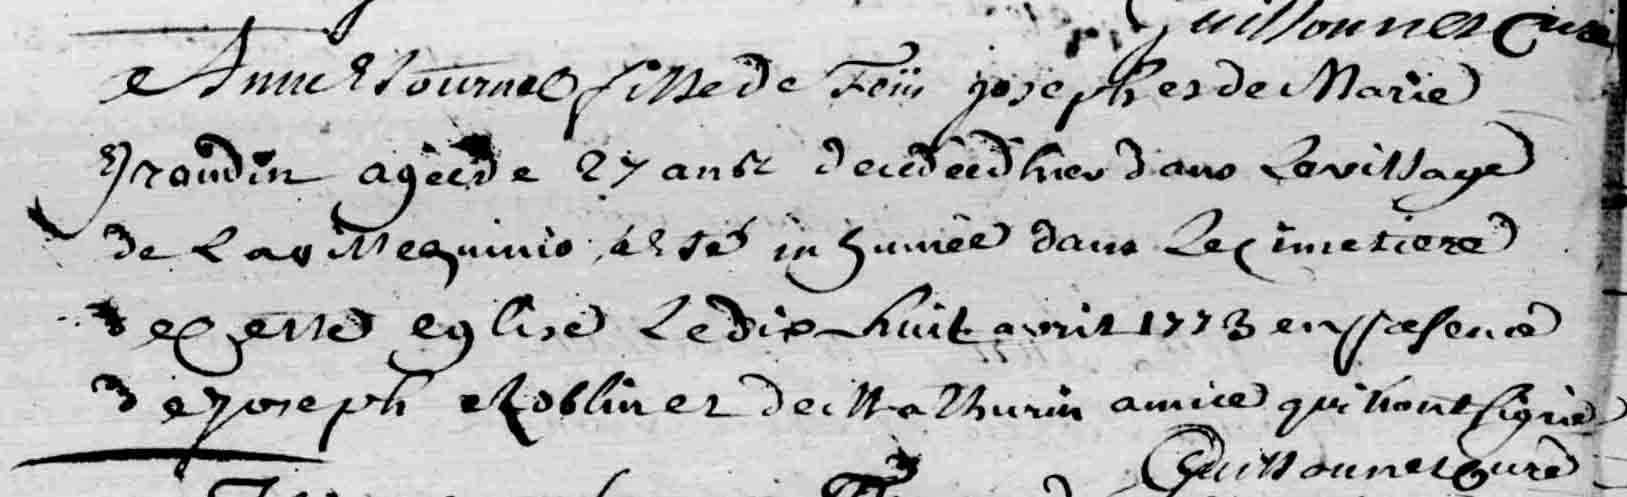 Guillonnet Curé
Anne Etournel fille de Feü joseph et de Marie
Graudin agée de 27 ans decedée d'hier dans Le village
de La villequinio a Esté inhumée dans Le cimetiere
de cette eglise Le dix huit avril 1773 en presence
de joseph Roblin et de Mathurin amice qui n'ont signé
Guillonnet curé